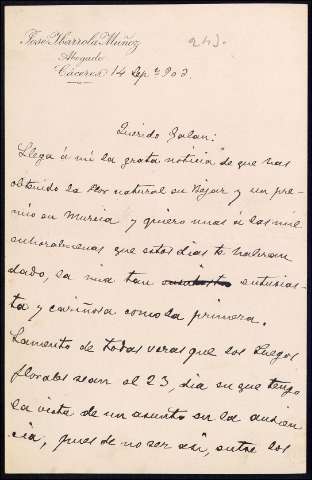 José Ibarrola Muñoz
Abogado
Cáceres 14 Sep.e 903.
243.
Querido Galan:
Llega á mí la grata noticia de que has
obtenido la flor natural en Bejar y un pre-
mio en Murcia y quiero unas á las mil
enhorabuenas que estos dias te habran
dado, la mia tan entusias-
ta y cariñosa como la primera.
Lamento de todas veras que los Juegos
florales sean el 23, dia en que tengo
la vista de un asunto en la audien
cia, pues de no ser asi, entre los